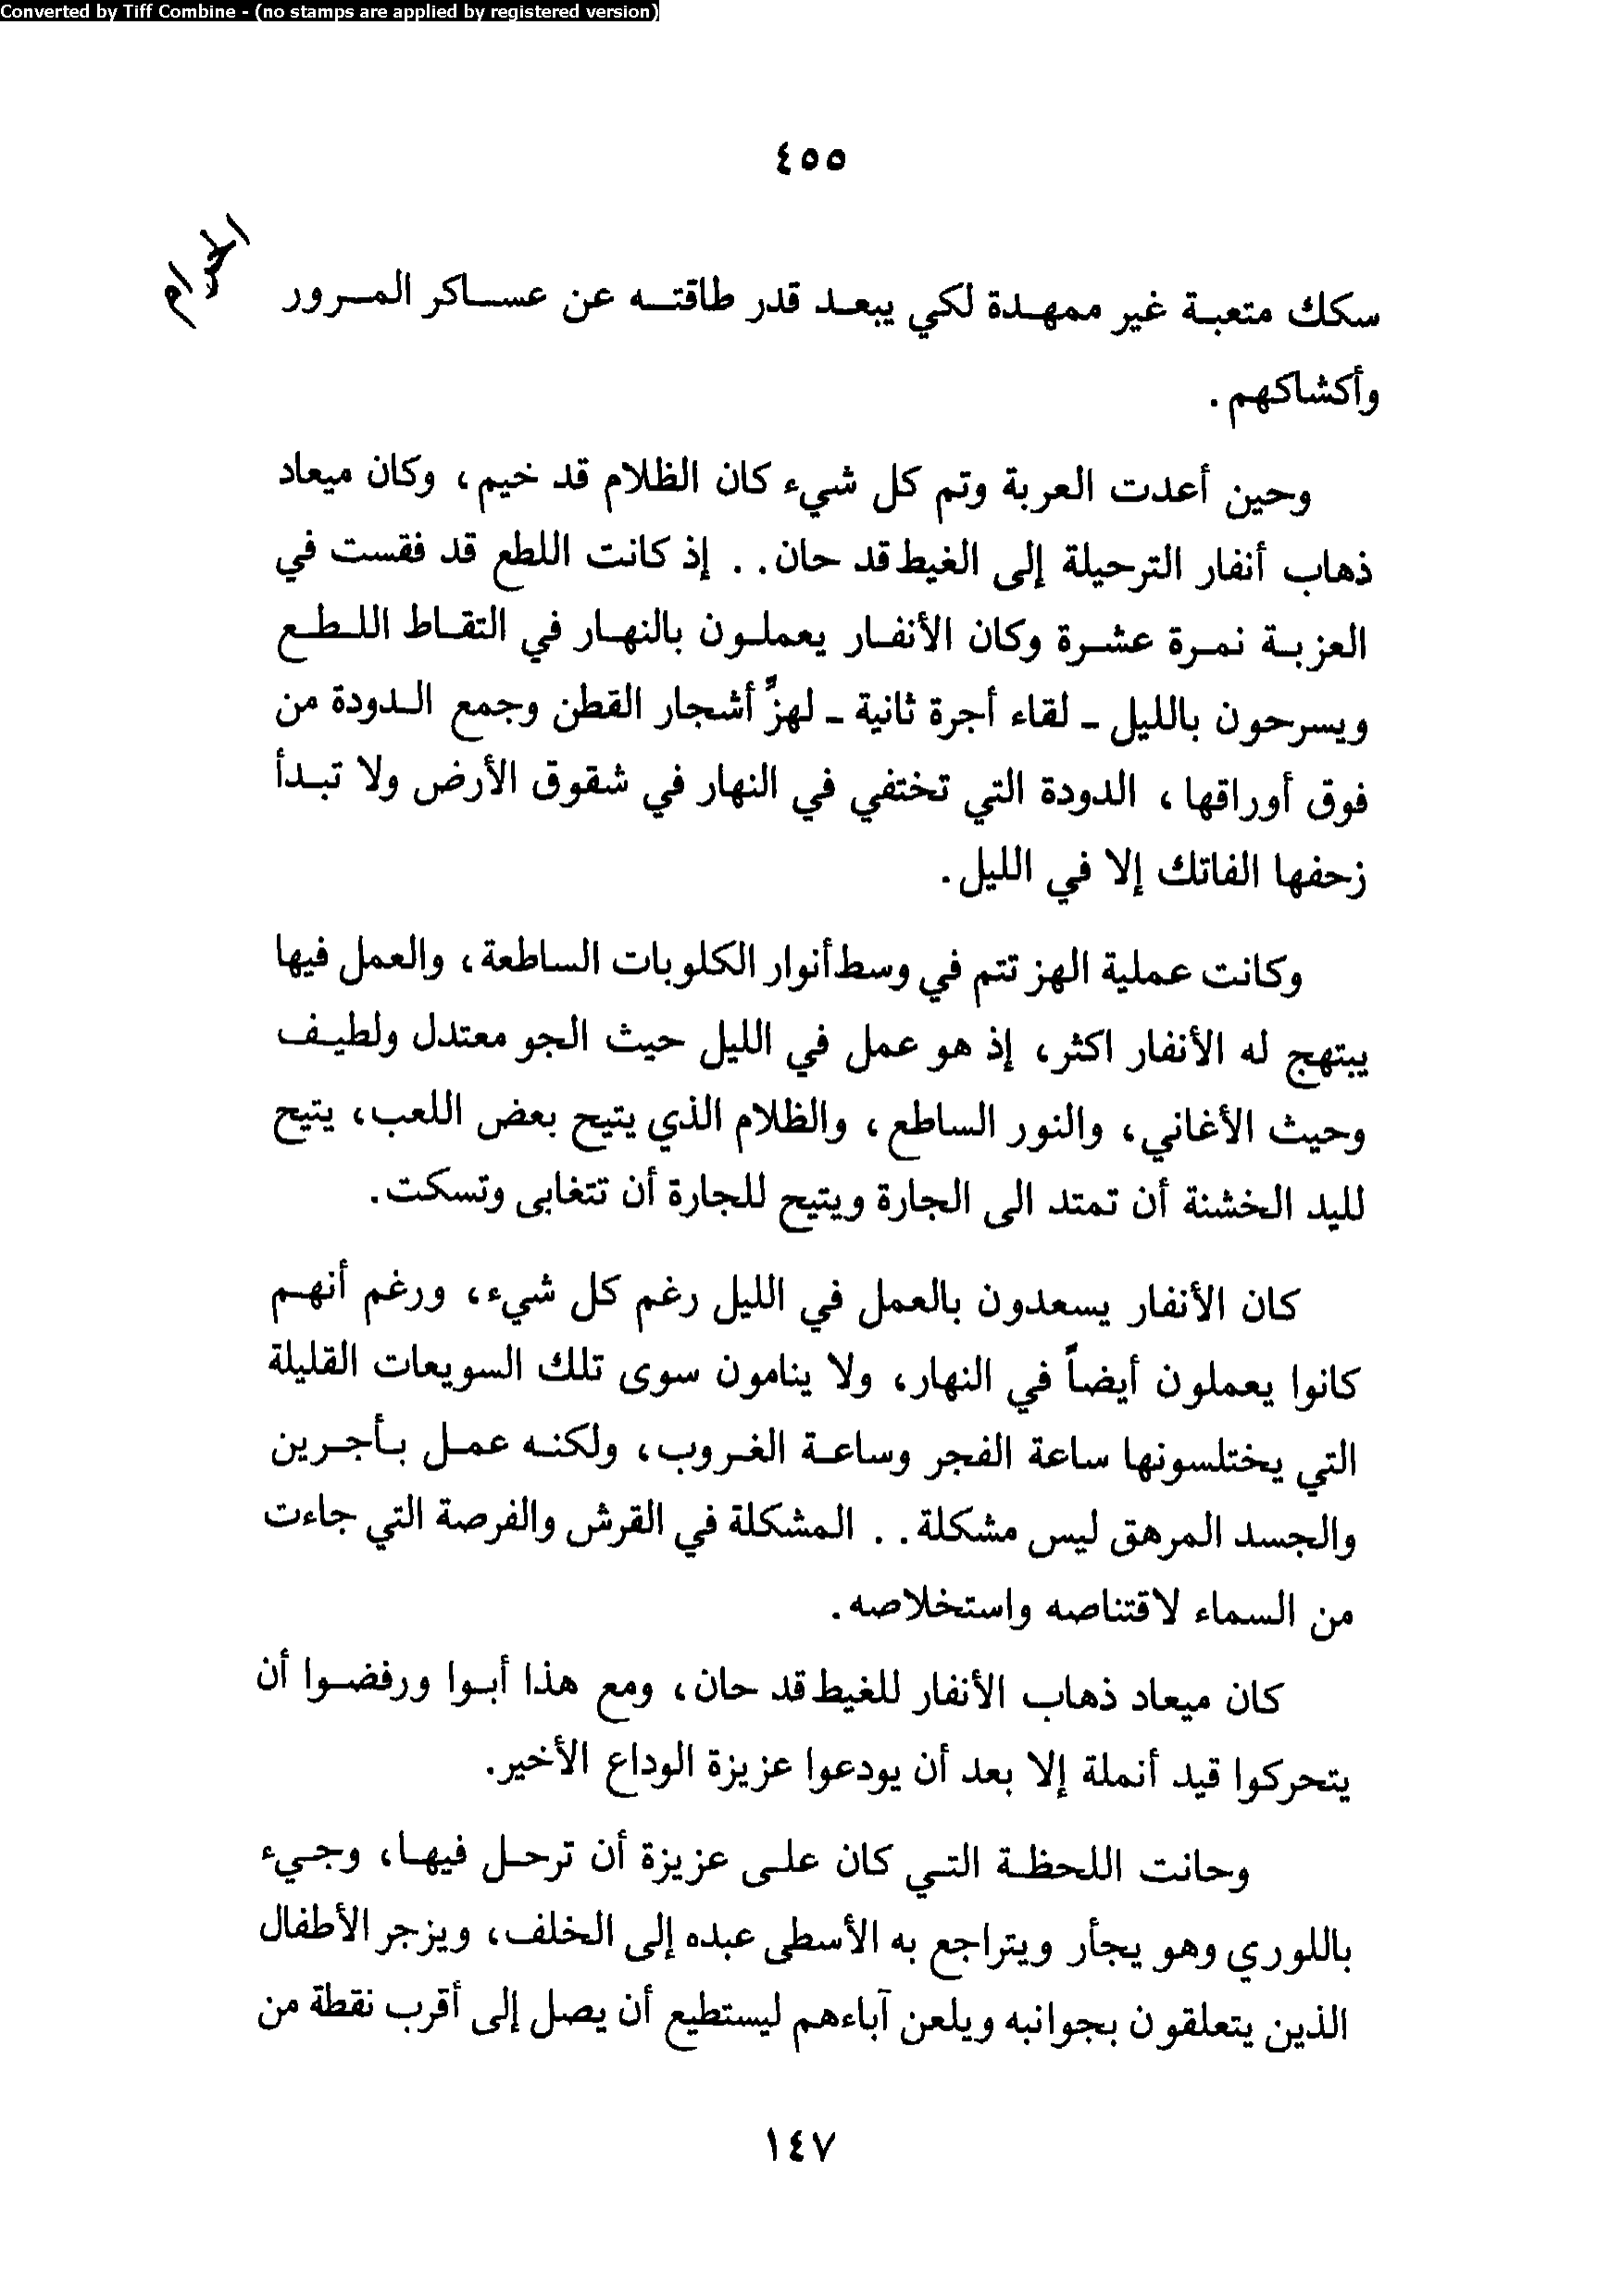 Converted by Tiff Combine - (no stamps are applied by registered version)
٤٥٥
الحرام
سكك متعبة غير ممهدة لكي يبعد قدر طاقته عن عساكر المرور
وأكشاكهم .
وحين أعدت العربة وتم كل شيء كان الظلام قد خيم، وكان ميعاد
ذهاب أنفار الترحيلة إلى الغيط قد حان . . إذ كانت اللطع قد فقست في
العزبة نمرة عشرة وكان الأنفار يعملون بالنهار في التقاط اللطع
ويسرحون بالليل - لقاء أجرة ثانية - لهزِّ أشجار القطن وجمع الدودة من
فوق أوراقها، الدودة التي تختفي في النهار في شقوق الأرض ولا تبدأ
زحفها الفاتك إلا في الليل .
وكانت عملية الهز تتم في وسط أنوار الكلوبات الساطعة، والعمل فيها
يبتهج له الأنفار اكثر، إذ هو عمل في الليل حيث الجو معتدل ولطيف
وحيث الأغاني، والنور الساطع، والظلام الذي يتيح بعض اللعب، يتيح
لليد الخشنة أن تمتد الى الجارة ويتيح للجارة أن تتغابى وتسكت .
كان الأنفار يسعدون بالعمل في الليل رغم كل شيء، ورغم أنهم
كانوا يعملون أيضاً في النهار، ولا ينامون سوى تلك السويعات القليلة
التي يختلسونها ساعة الفجر وساعة الغروب، ولكنه عمل بأجرين
والجسد المرهق ليس مشكلة . . المشكلة في القرش والفرصة التي جاءت
من السماء لاقتناصه واستخلاصه .
كان ميعاد ذهاب الأنفار للغيط قد حان، ومع هذا أبوا ورفضوا أن
يتحركوا قيد أنملة إلا بعد أن يودعوا عزيزة الوداع الأخير.
وحانت اللحظة التي كان على عزيزة أن ترحل فيها، وجيء
باللوري وهو يجأر ويتراجع به الأسطى عبده إلى الخلف، ويزجر الأطفال
الذين يتعلقون بجوانبه ويلعن آباءهم ليستطيع أن يصل إلى أقرب نقطة من
١٤٧